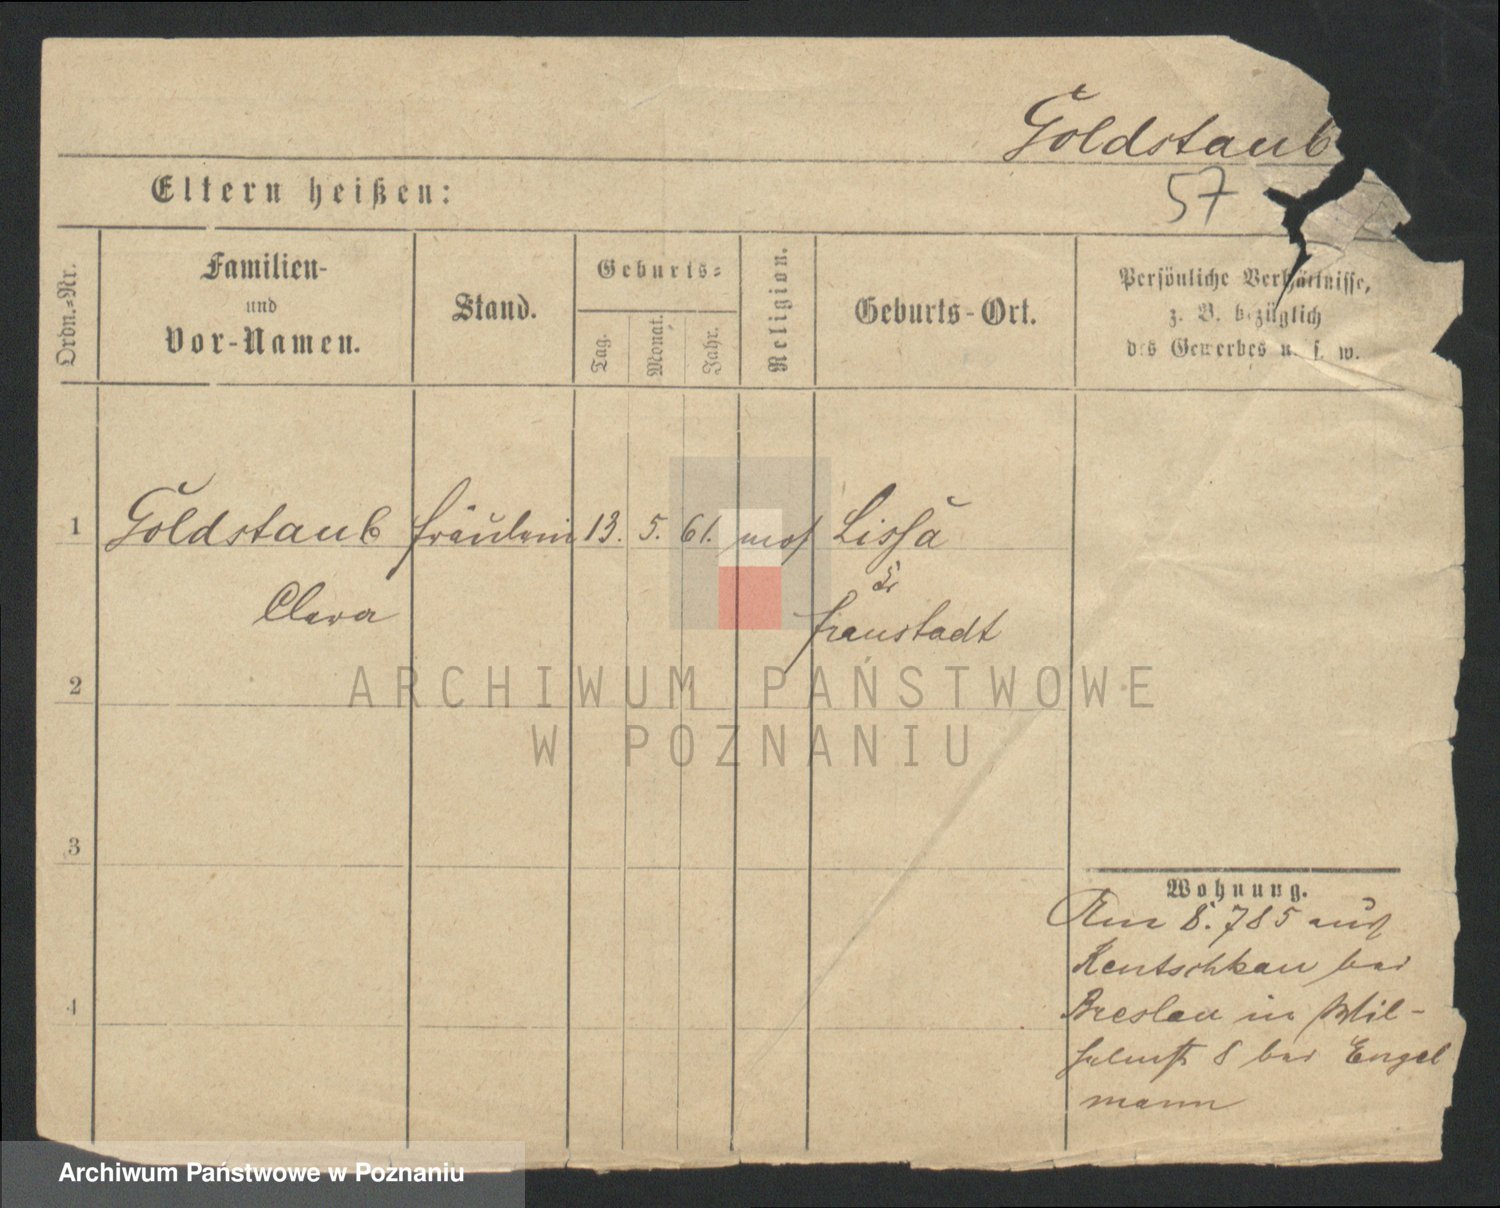 Goldstaub
57
Eltern heißen:
Ordn.=Nr.
Familien-
und
Vor-Namen.
Stand.
Geburts=
Tag.
Monat.
Jahr.
Religion.
Geburts-Ort.
Persönliche Verhältnisse,
z. B. bezüglich
des Gewerbes u. s. w.
1 Goldstaub Fräulein 13. 5. 61. mos Lissa
Kr
Clara Fraustadt
2
3
4
Wohnung.
Am 8. 7 85 aus
Kentschkau bei
Breslau in Wil-
helmst 8 bei Engel
mann
ARCHIWUM PAŃSTWOWE
W POZNANIU
Archiwum Państwowe w Poznaniu